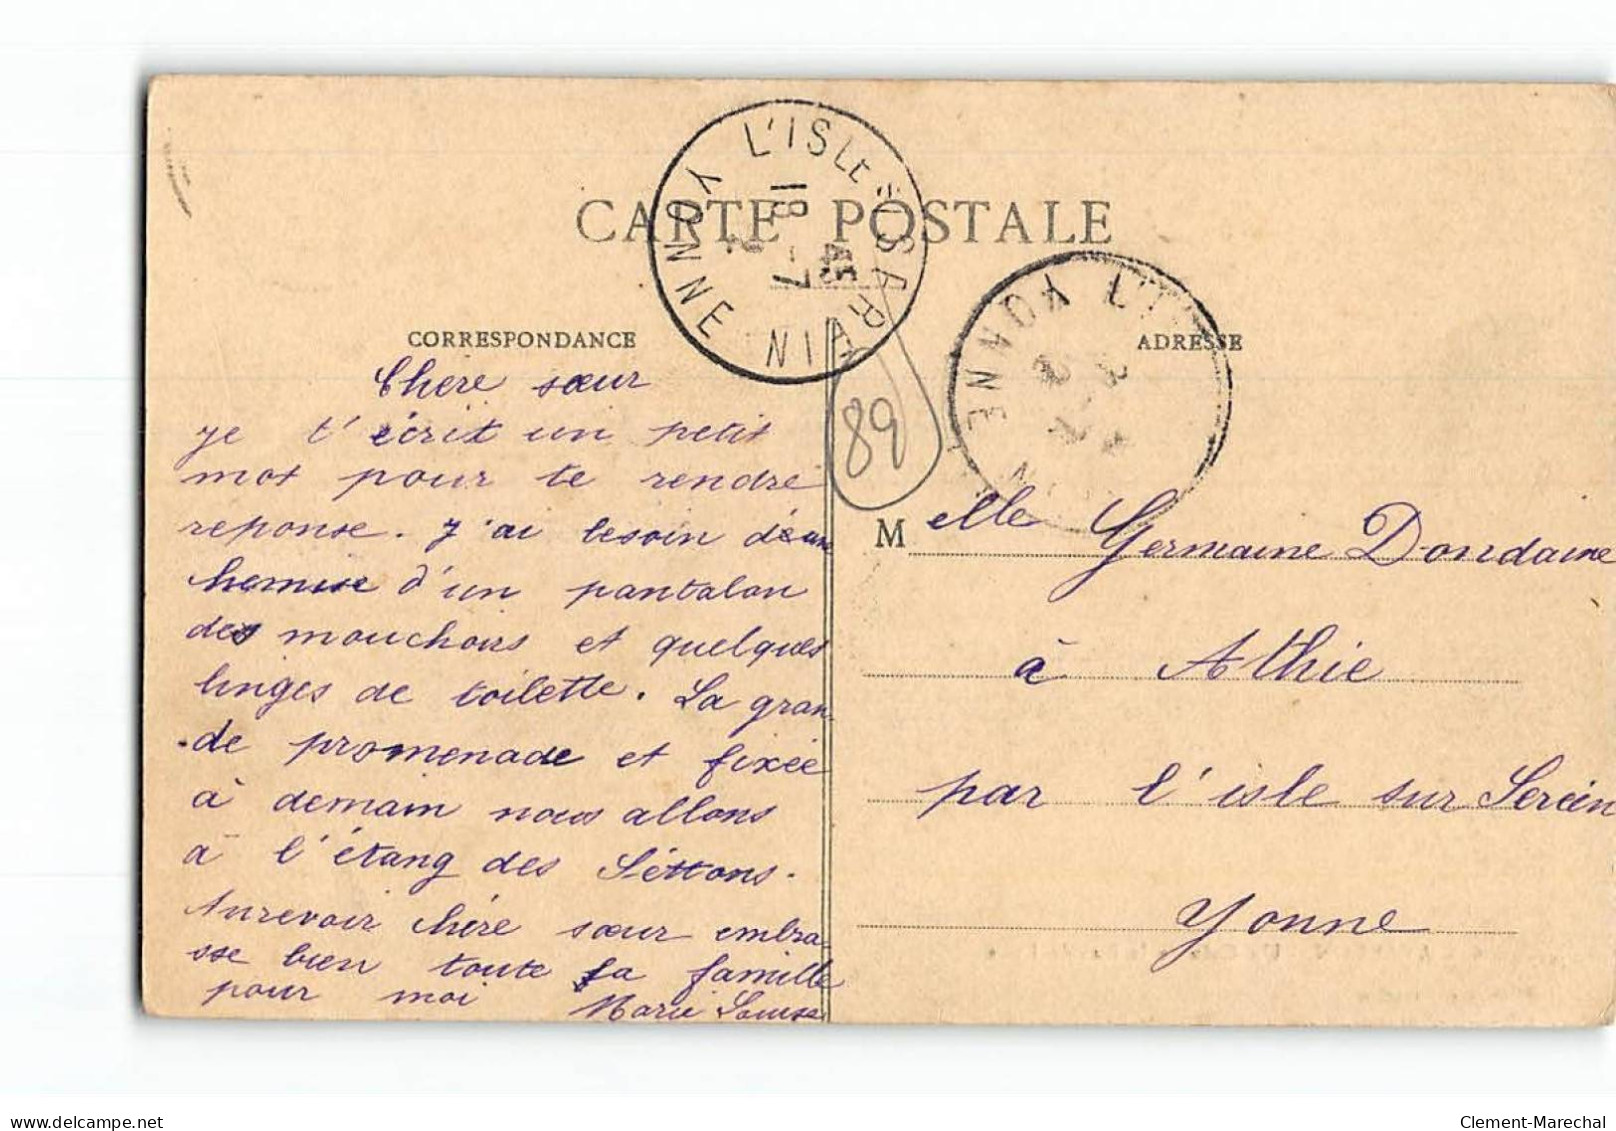 CARTE POSTALE
L'ISLE-S-SARAIN
YONNE
18 - 7
45
CORRESPONDANCE
ADRESSE
YONNE
89
Chère sœur
je t'écrit un petit
mot pour te rendre
reponse. J'ai besoin d'une
chemise d'un pantalon
des mouchoirs et quelques
linges de toilette. La gran-
de promenade et fixée
à demain nous allons
à l'étang des Séttons.
Aurevoir chère sœur embra-
sse bien toute la famille
pour moi Marie Louise
Melle Germaine Dondaine
à Athie
par l'isle sur Serein
Yonne
www.delcampe.net
Clement-Marechal